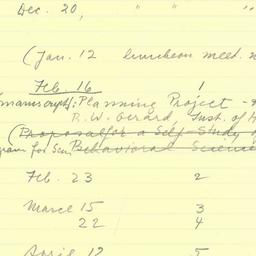 Dec. 20, " "
(Jan. 12 luncheon meet.
Feb. 16 1
manuscript): Planning Project -
R. W. Gerard, Inst. of
(Proposal for a Self-Study
gram for Sen Behavioral Science
Feb. 23 2
March 15 3
22 4
April 12 5